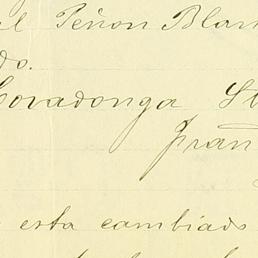 al Peñon Blan
do.
Covadonga St
fran
esta cambiado